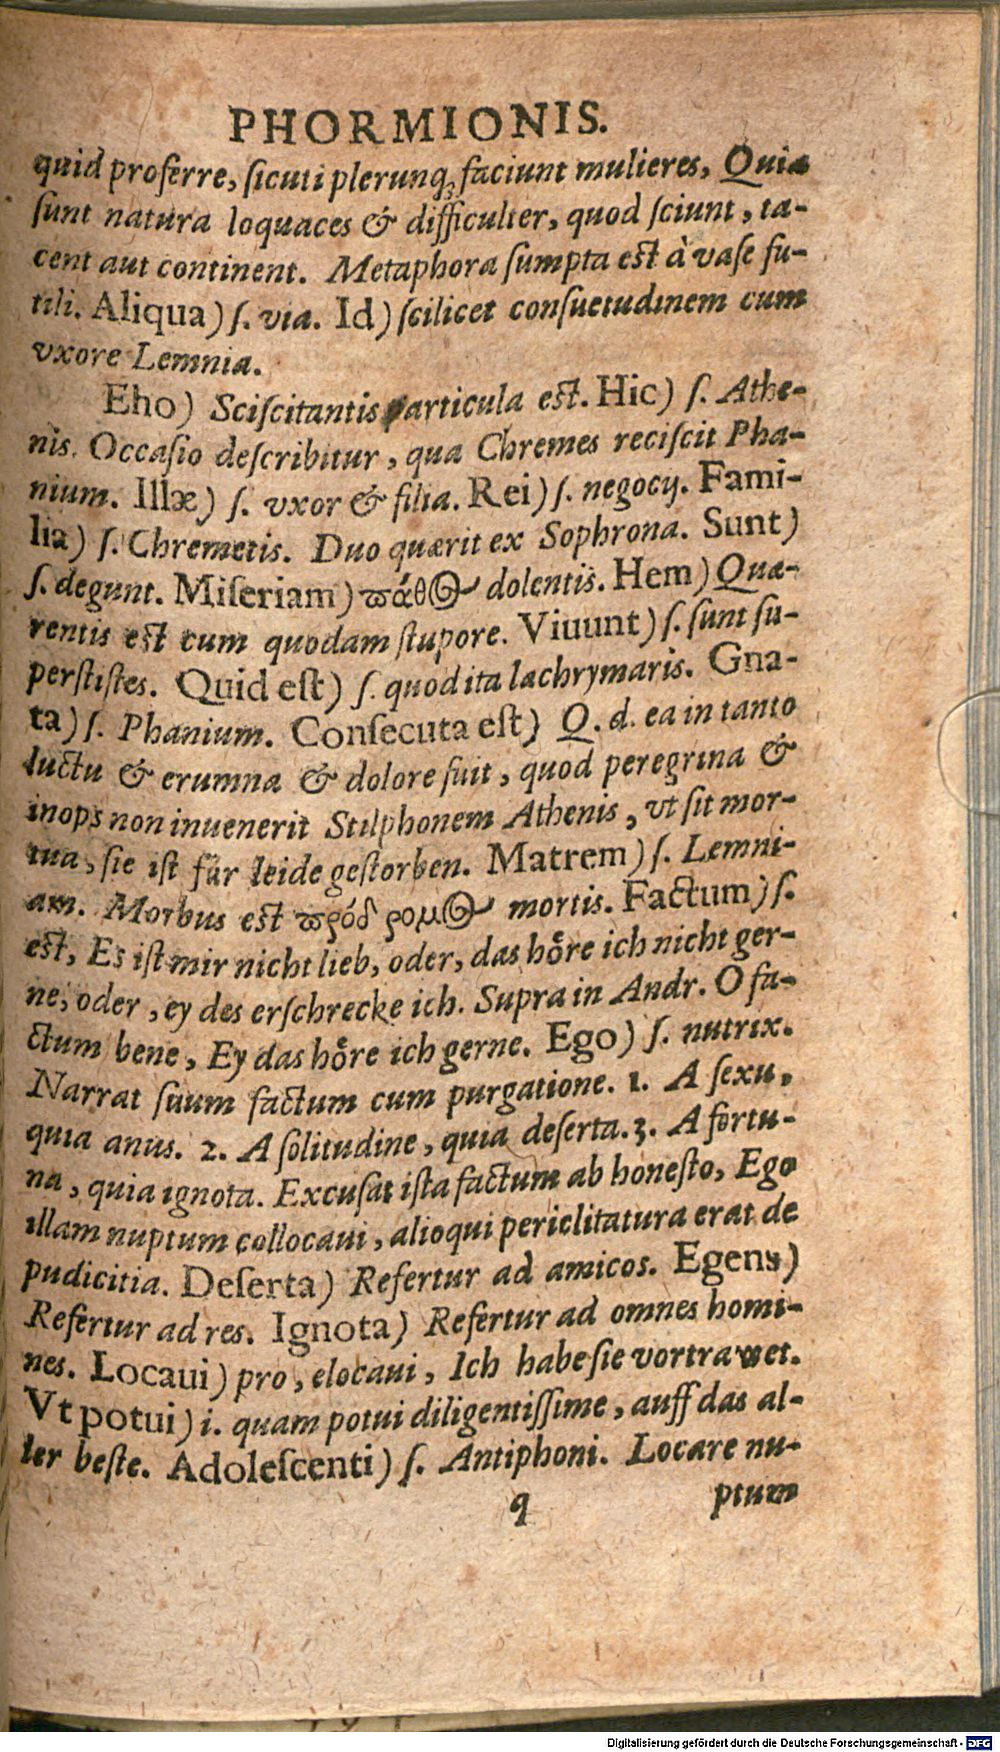 PHORMIONIS.
quid proferre, ſicuti plerunq; faciunt mulieres, Quia
ſunt natura loquaces & difficulter, quod ſciunt, ta-
cent aut continent. Metaphora ſumpta eſt à vaſe fu-
tili. Aliqua) ſ. via. Id) ſcilicet conſuetudinem cum
vxore Lemnia.
Eho) Sciſcitantis particula eſt. Hic) ſ. Athe-
nis. Occaſio deſcribitur, qua Chremes reciſcit Pha-
nium. Illæ) ſ. vxor & filia. Rei) ſ. negocij. Fami-
lia) ſ. Chremetis. Duo quærit ex Sophrona. Sunt)
ſ. degunt. Miſeriam) πάθος dolentis. Hem) Quæ-
rentis eſt cum quodam ſtupore. Viuunt) ſ. ſunt ſu-
perſtiſtes. Quid eſt) ſ. quod ita lachrymaris. Gna-
ta) ſ. Phanium. Conſecuta eſt) Q. d. ea in tanto
luctu & erumna & dolore fuit, quod peregrina &
inops non inuenerit Stilphonem Athenis, vt ſit mor-
tua, ſie iſt für leide geſtorben. Matrem) ſ. Lemni-
am. Morbus eſt πρόδρομος mortis. Factum) ſ.
eſt, Es iſt mir nicht lieb, oder, das hoͤre ich nicht ger-
ne, oder, ey des erſchrecke ich. Supra in Andr. O fa-
ctum bene, Ey das hoͤre ich gerne. Ego) ſ. nutrix.
Narrat ſuum factum cum purgatione. 1. A ſexu,
quia anus. 2. A ſolitudine, quia deſerta. 3. A fortu-
na, quia ignota. Excuſat iſta factum ab honeſto, Ego
illam nuptum collocaui, alioqui periclitatura erat de
pudicitia. Deſerta) Refertur ad amicos. Egens)
Refertur ad res. Ignota) Refertur ad omnes homi-
nes. Locaui) pro, elocaui, Ich habe ſie vortrawet.
Vt potui) i. quam potui diligentiſſime, auff das al-
ler beſte. Adoleſcenti) ſ. Antiphoni. Locare nu-
q ptum
Digitalisierung gefördert durch die Deutsche Forschungsgemeinschaft - DFG